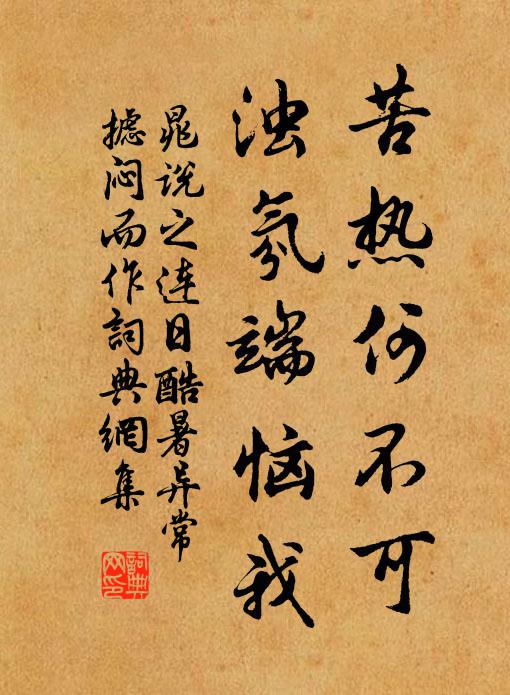 苦热何不可
浊氛端恼我
晁说之连日酷暑异常
摅闷而作詞典網集
詞典
网印